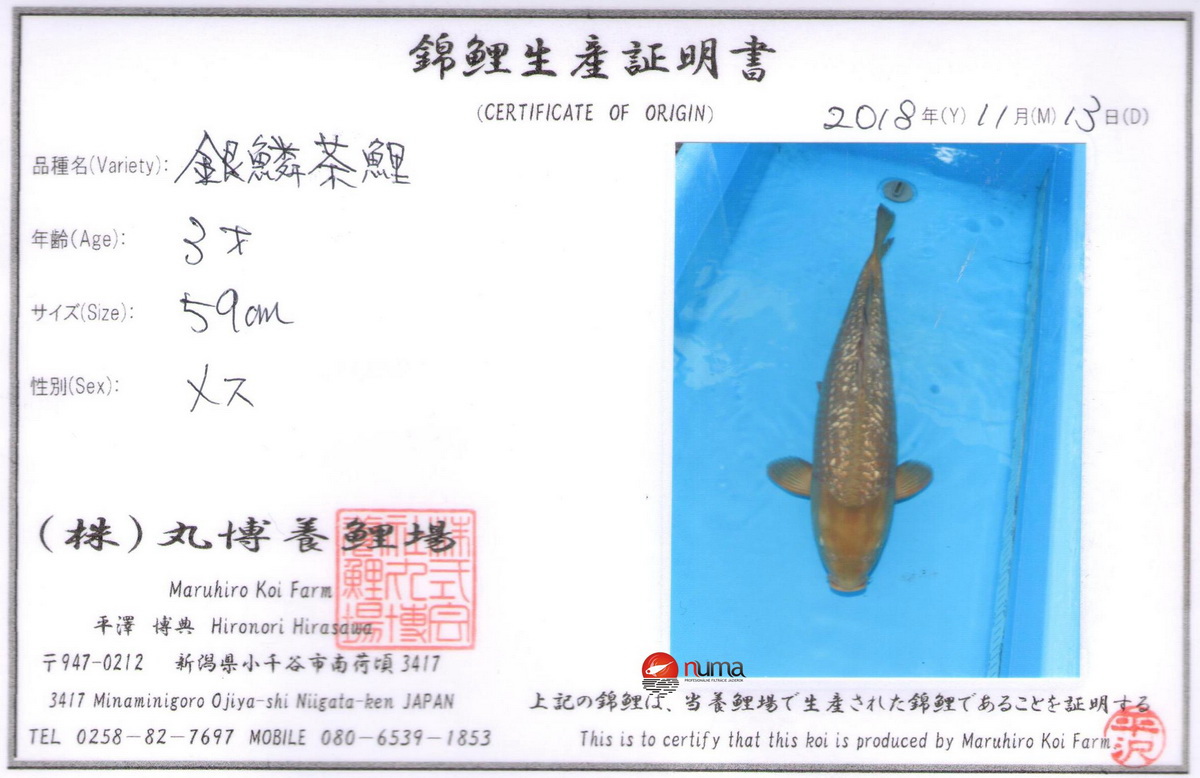 錦鯉生産証明書
(CERTIFICATE OF ORIGIN)
2018年(Y) 11月(M) 13日(D)
品種名(Variety): 銀鱗茶鯉
年齢(Age): 3才
サイズ(Size): 59cm
性別(Sex): メス
(株)丸博養鯉場
Maruhiro Koi Farm
平澤 博典 Hironori Hirasawa
〒947-0212 新潟県小千谷市南荷頃3417
3417 Minaminigoro Ojiya-shi Niigata-ken JAPAN
TEL 0258-82-7697 MOBILE 080-6539-1853
numa
PROFESJONALNE FILTRACJE JAZIEROK
上記の錦鯉は、当養鯉場で生産された錦鯉であることを証明する
This is to certify that this koi is produced by Maruhiro Koi Farm
平沢